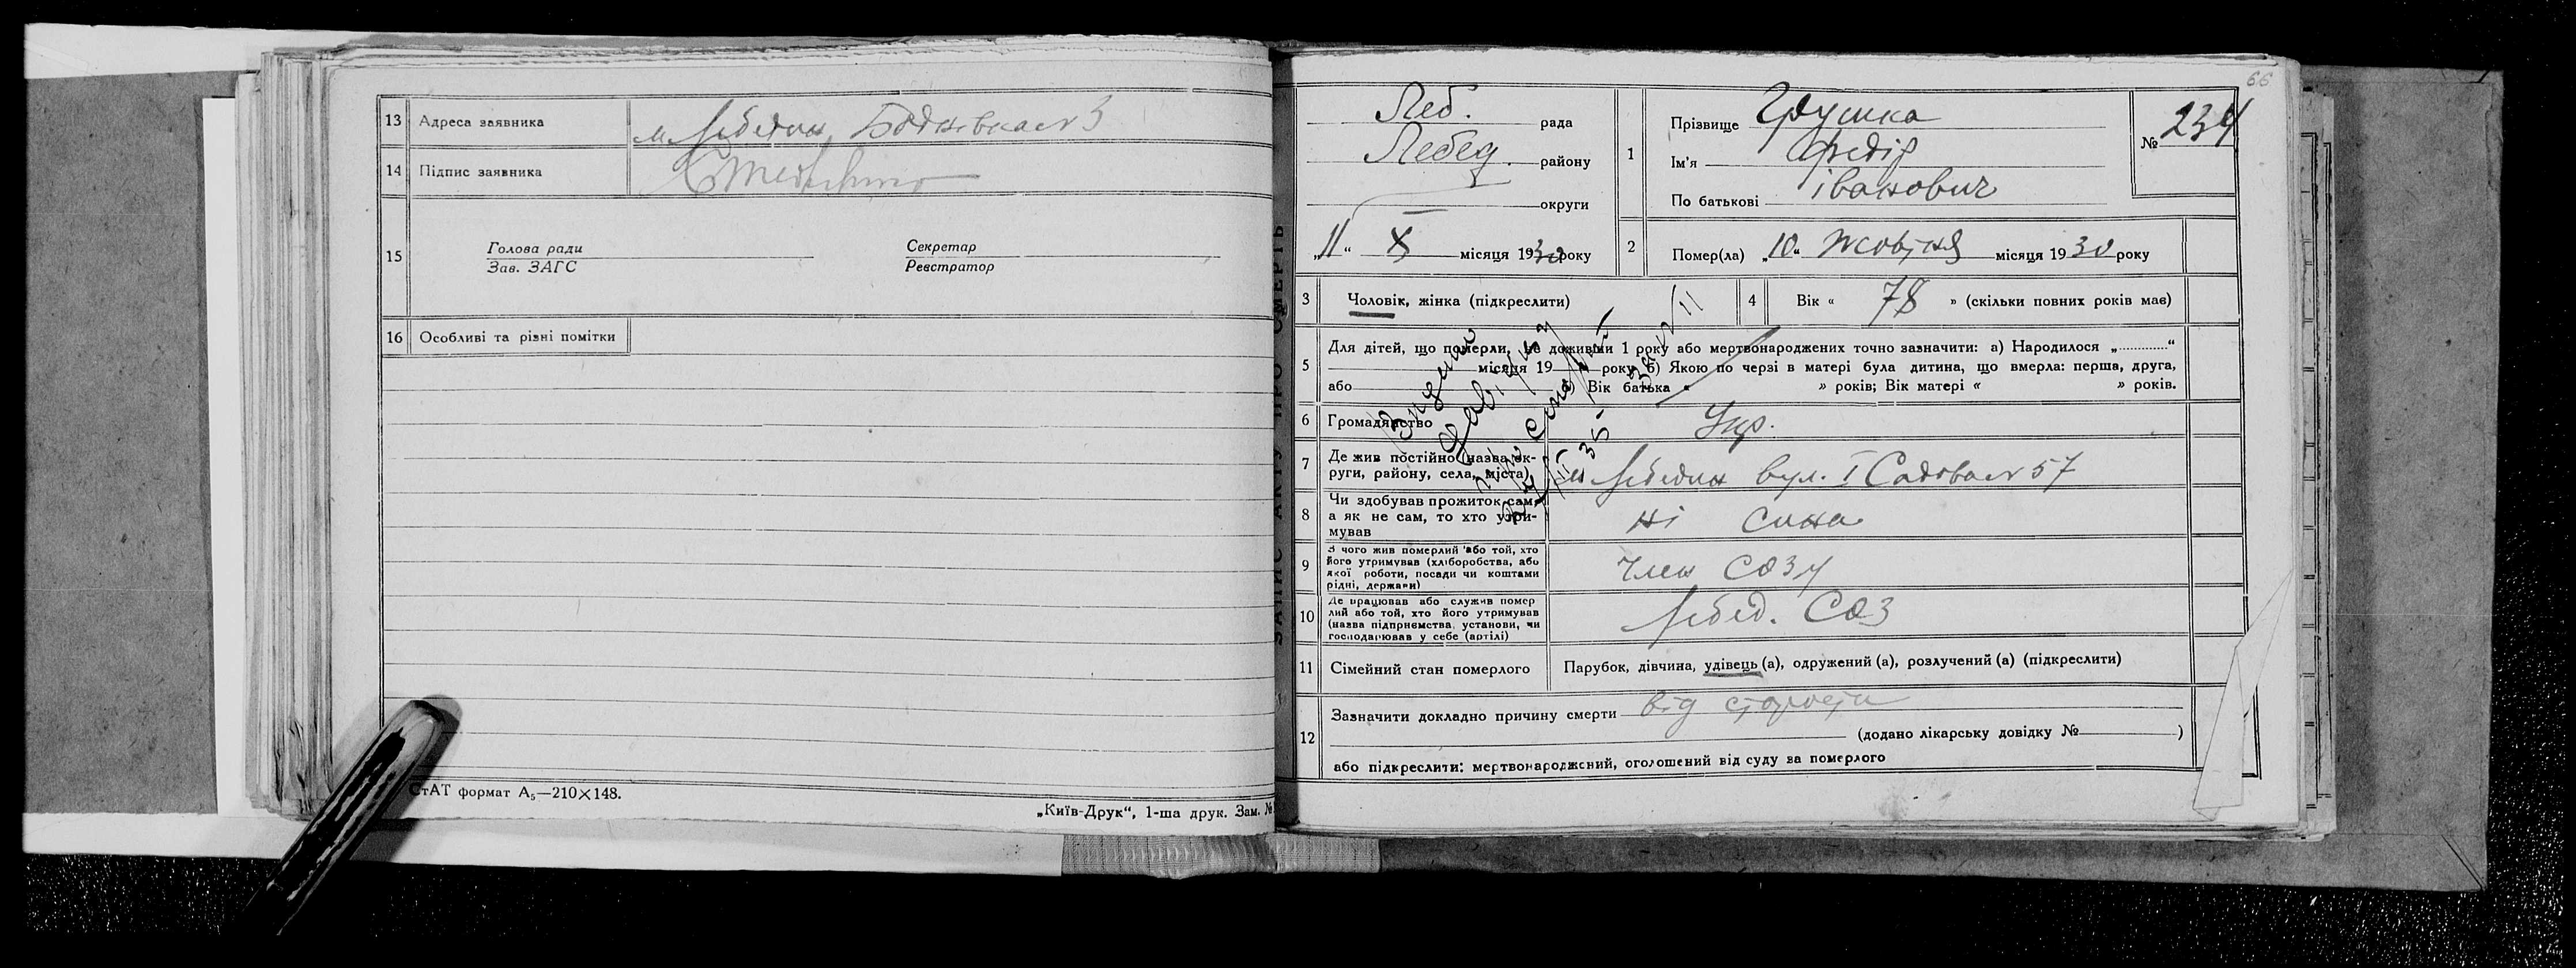 13 Адреса заявника м. Лебедин, Бодневка № 3
14 Підпис заявника
15 Голова ради Секретар
Зав. ЗАГС Реєстратор
16 Особливі та різні помітки
СтАТ формат А₅—210×148.
„Київ-Друк“, 1-ша друк. Зам. №
66
Леб. рада
Лебед. району
округи
„11“ X місяця 1930 року
1 Прізвище Грушка
Ім'я Федір
По батькові Іванович
№ 234
2 Помер(ла) „10“ жовтня місяця 1930 року
ЗАПИС АКТУ ПРО СМЕРТЬ
3 Чоловік, жінка (підкреслити)
4 Вік « 78 » (скільки повних років має)
5 Для дітей, що померли, не доживши 1 року або мертвонароджених точно зазначити: а) Народилося „ “
місяця 19 року б) Якою по черзі в матері була дитина, що вмерла: перша, друга,
або Вік батька « » років; Вік матері « » років.
6 Громадянство Укр.
7 Де жив постійно (назва округи, району, села, міста) м Лебедин вул. I Садова № 57
8 Чи здобував прожиток сам, а як не сам, то хто утримував ні сина
9 З чого жив померлий або той, хто його утримував (хліборобства, або якої роботи, посади чи коштами рідні, держави) член СОЗу
10 Де працював або служив померлий або той, хто його утримував (назва підприємства, установи, чи господарював у себе (артілі) Лебед. СОЗ
11 Сімейний стан померлого Парубок, дівчина, удівець (а), одружений (а), розлучений (а) (підкреслити)
12 Зазначити докладно причину смерти від старости
(додано лікарську довідку № )
або підкреслити: мертвонароджений, оголошений від суду за померлого